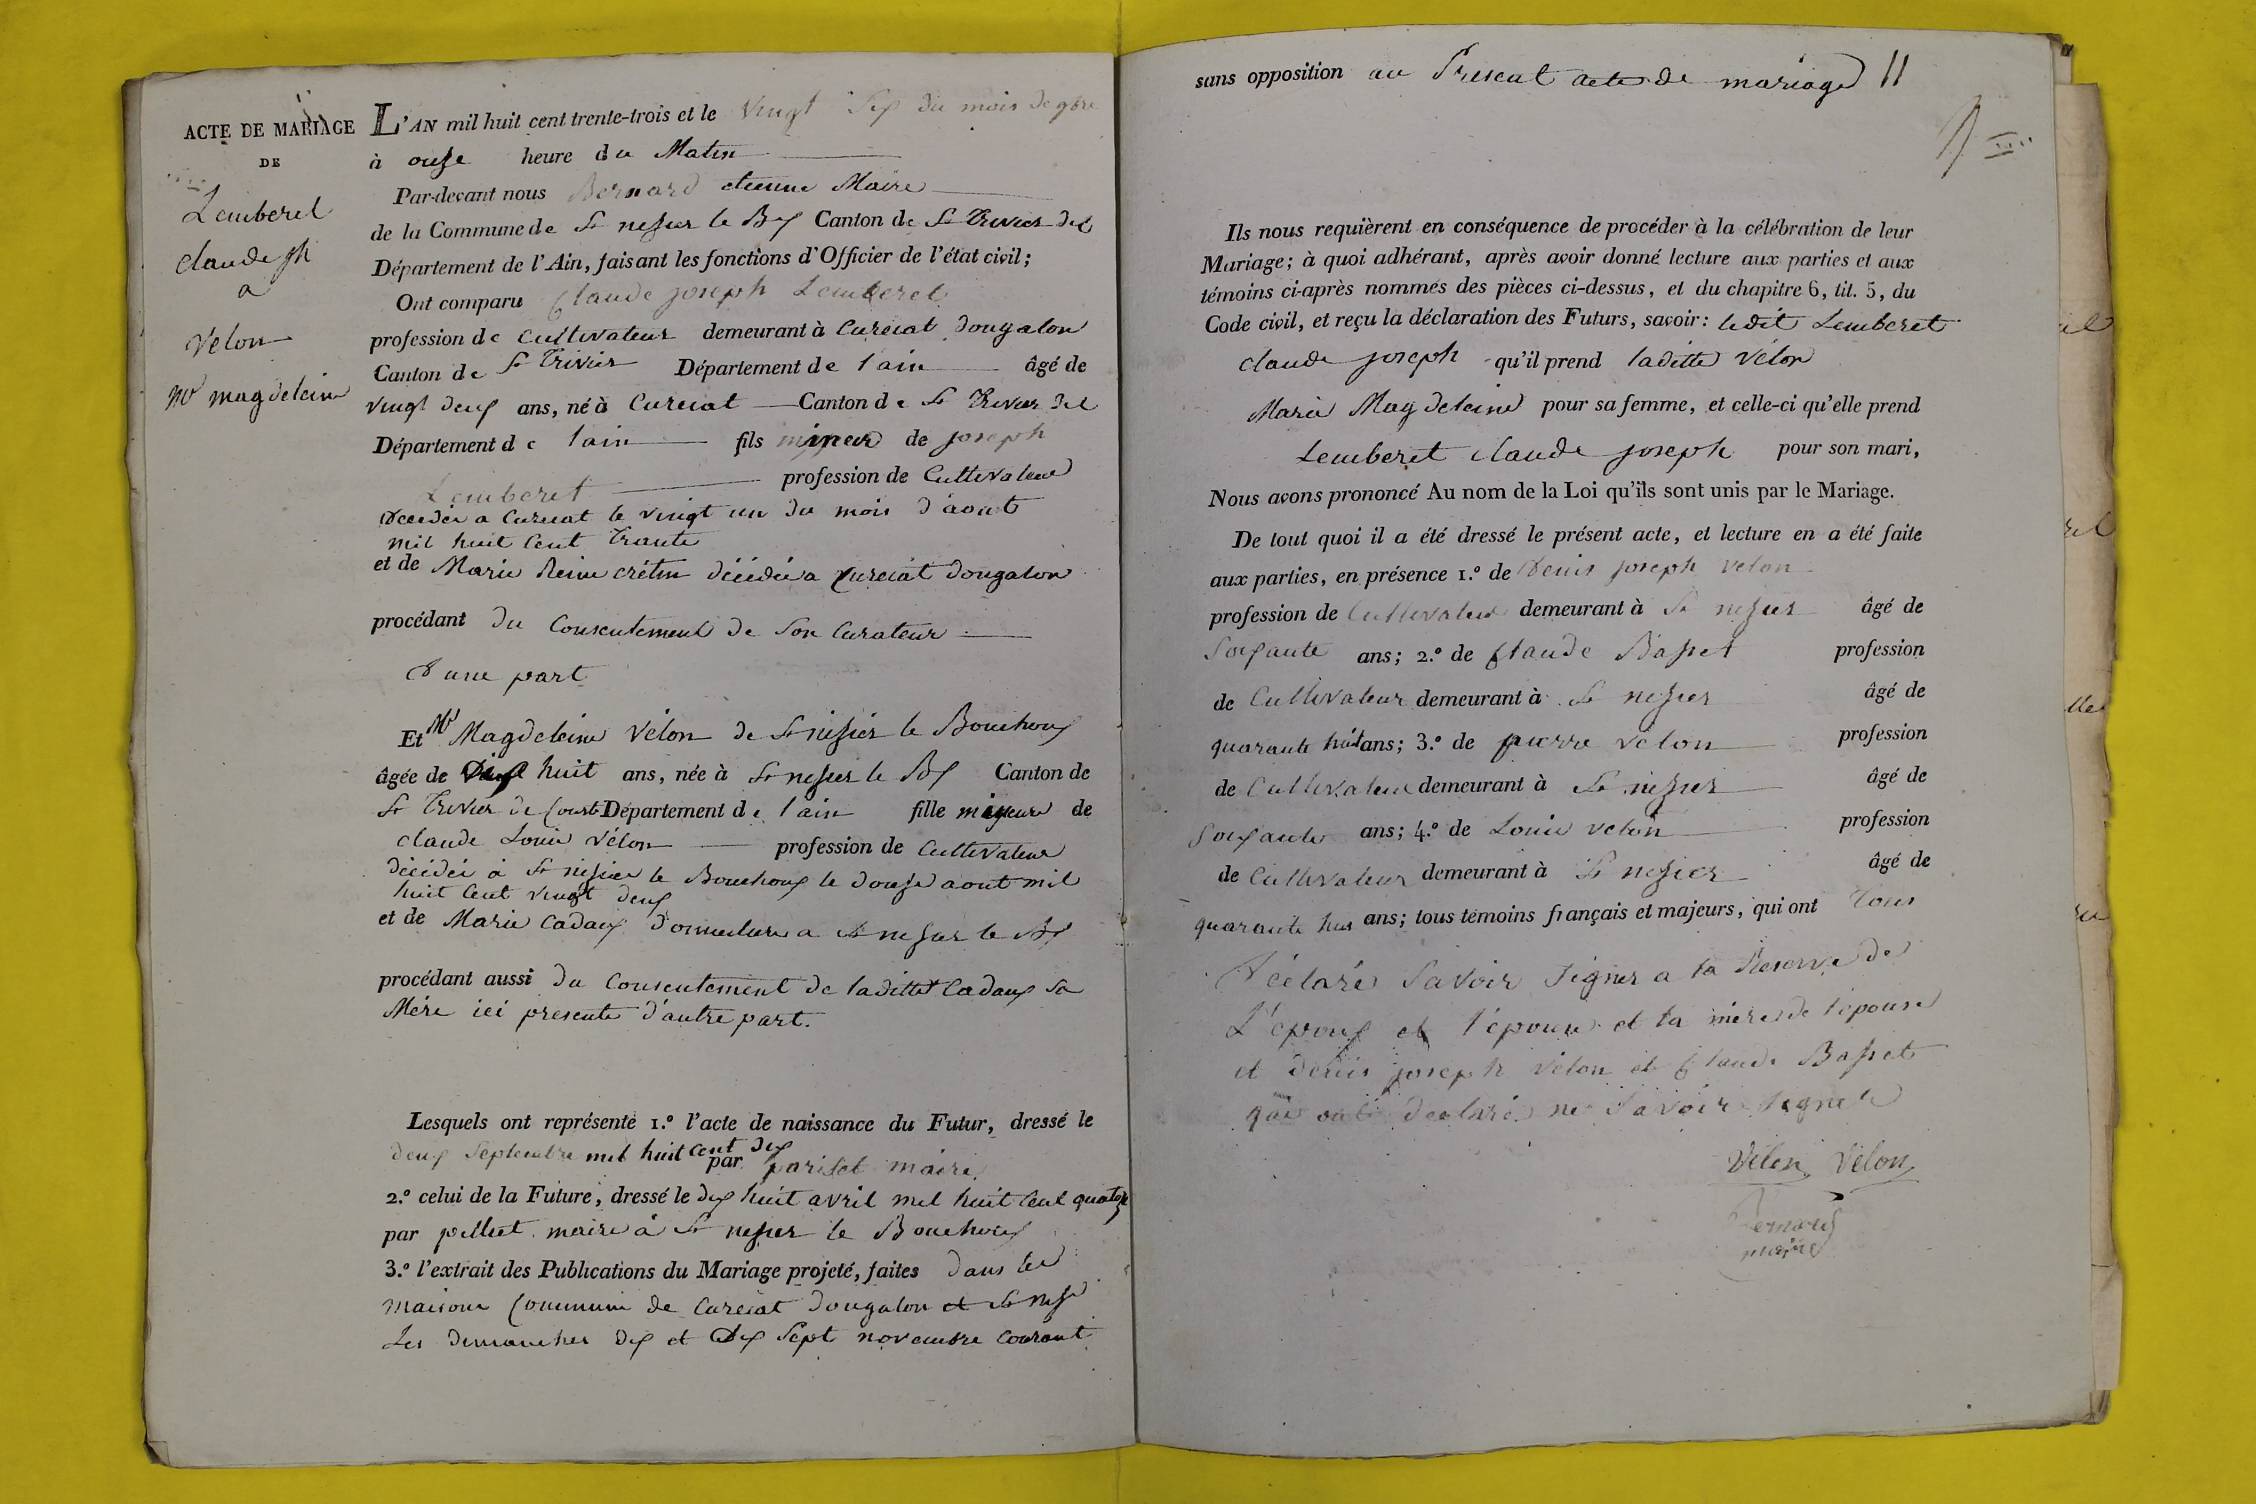 ACTE DE MARIAGE
DE
Lemberet
claude jph
a
Vélon
Mie magdeleine
L'AN mil huit cent trente-trois et le vingt Six du mois de 9bre
à onse heure du Matin
Par-devant nous Bernard etienne Maire
de la Commune de St nesier le Bx Canton de St Trivier de C
Département de l'Ain, faisant les fonctions d'Officier de l'état civil;
Ont comparu Claude joseph Lemberet
profession de Cultivateur demeurant à Curciat dongalon
Canton de St Trivier Département de l'ain âgé de
vingt deux ans, né à Curciat Canton de St Trivier de C
Département de l'ain fils mineur de joseph
Lemberet profession de Cultivateur
Décédé a Curciat le vingt un du mois d'aout
mil huit Cent Trante
et de Marie Reine crétin décédée a Curciat dongalon
procédant du Consentement de Son Curateur
D'une part
Et Mie Magdeleine Vélon de St nisier le Bouchoux
âgée de huit ans, née à St nesier le Bx Canton de
St Trivier de Courtes Département de l'ain fille mineure de
claude Louis Vélon profession de Cultivateur
décédé à St nisier le Bouchoux le douse aout mil
huit Cent vingt deux
et de Marie Cadaux domiciliée a St nesier le Bx
procédant aussi du Consentement de laditte Cadaux sa
Mère ici presente d'autre part.
Lesquels ont représenté 1.º l'acte de naissance du Futur, dressé le
deux Septembre mil huit Cent dix
par pariset maire
2.º celui de la Future, dressé le dix huit avril mil huit Cent quatorze
par pelliet maire à St nesier le Bouchoux
3.º l'extrait des Publications du Mariage projeté, faites dans les
maisons Commune de Curciat dongalon et St nesier
Les dimanches dix et dix Sept novembre courant
sans opposition au Present acte de mariage 11
Ils nous requièrent en conséquence de procéder à la célébration de leur
Mariage; à quoi adhérant, après avoir donné lecture aux parties et aux
témoins ci-après nommés des pièces ci-dessus, et du chapitre 6, tit. 5, du
Code civil, et reçu la déclaration des Futurs, savoir: ledit Lemberet
claude joseph qu'il prend laditte Vélon
Marie Magdeleine pour sa femme, et celle-ci qu'elle prend
Lemberet claude joseph pour son mari,
Nous avons prononcé Au nom de la Loi qu'ils sont unis par le Mariage.
De tout quoi il a été dressé le présent acte, et lecture en a été faite
aux parties, en présence 1.º de Denis joseph velon
profession de Cultivateur demeurant à St nesier âgé de
Soixante ans; 2.º de Claude Basset profession
de Cultivateur demeurant à St nesier âgé de
quarante huit ans; 3.º de pierre vélon profession
de Cultivateur demeurant à St nesier âgé de
Soixante ans; 4.º de Louis velon profession
de Cultivateur demeurant à St nesier âgé de
quarante huit ans; tous témoins français et majeurs, qui ont Tous
Déclaré Savoir signer a la Reserve de
L'epoux et l'epouse et la mere de l'epouse
et denis joseph vélon et Claude Basset
qui ont declaré ne Savoir signer
Vélon Vélon
Bernard
maire